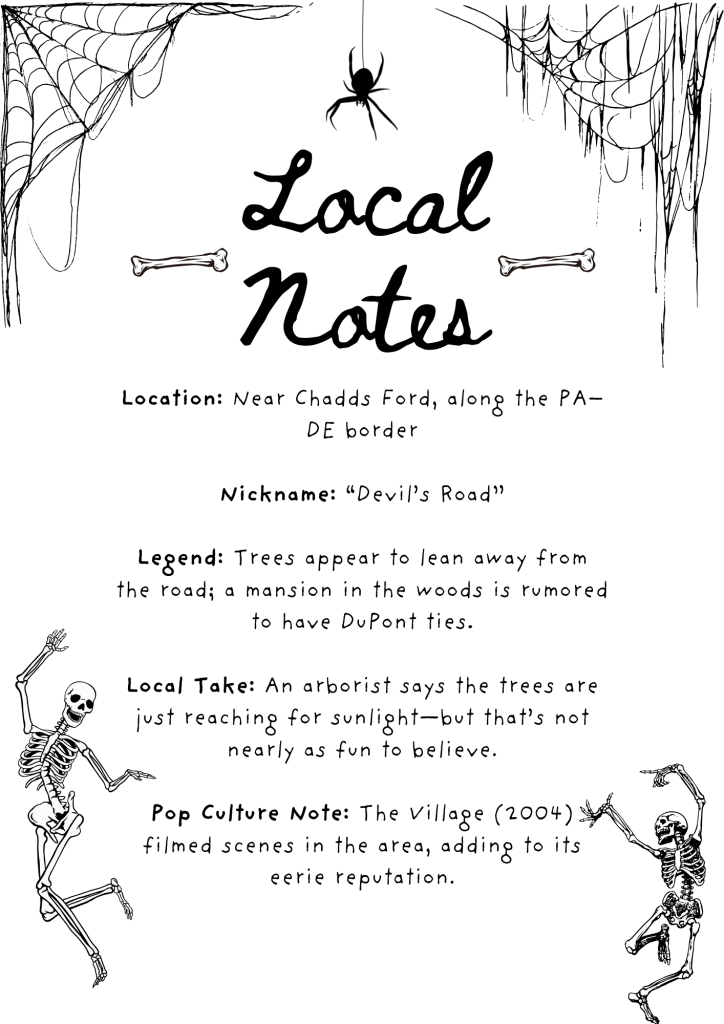 Local
Notes
Location: Near Chadds Ford, along the PA–
DE border
Nickname: “Devil’s Road”
Legend: Trees appear to lean away from
the road; a mansion in the woods is rumored
to have DuPont ties.
Local Take: An arborist says the trees are
just reaching for sunlight—but that’s not
nearly as fun to believe.
Pop Culture Note: The Village (2004)
filmed scenes in the area, adding to its
eerie reputation.